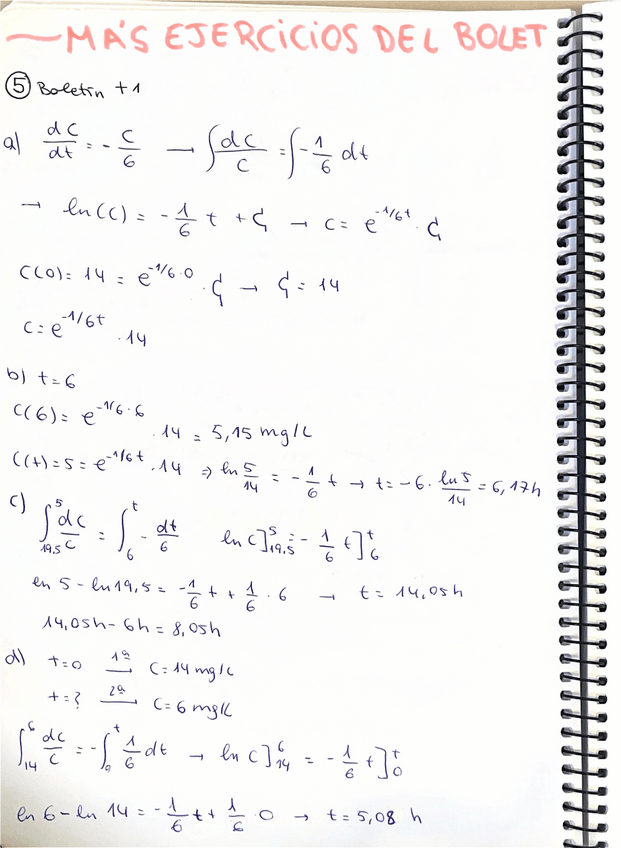 MÁS EJERCICIOS DEL BOLET
⑤ Boletín t1
a) dC/dt = - C/6 → ∫ dC/C = ∫ - 1/6 dt
→ ln(C) = - 1/6 t + C₁ → C = e^(-1/6t) · C₁
C(0) = 14 = e^(-1/6·0) · C₁ → C₁ = 14
C = e^(-1/6t) · 14
b) t = 6
C(6) = e^(-1/6·6) · 14 = 5,15 mg/L
C(t) = 5 = e^(-1/6t) · 14 ⇒ ln 5/14 = - 1/6 t → t = -6 · ln 5/14 = 6,17h
c) ∫_19,5^5 dC/C = ∫_6^t - dt/6 ln C]_19,5^5 = - 1/6 t]_6^t
ln 5 - ln 19,5 = - 1/6 t + 1/6 · 6 → t = 14,05h
14,05h - 6h = 8,05h
d) t=0 1ª→ C = 14 mg/L
t=? 2ª→ C = 6 mg/L
∫_14^6 dC/C = - ∫_0^t 1/6 dt → ln C]_14^6 = - 1/6 t]_0^t
ln 6 - ln 14 = - 1/6 t + 1/6 · 0 → t = 5,08 h